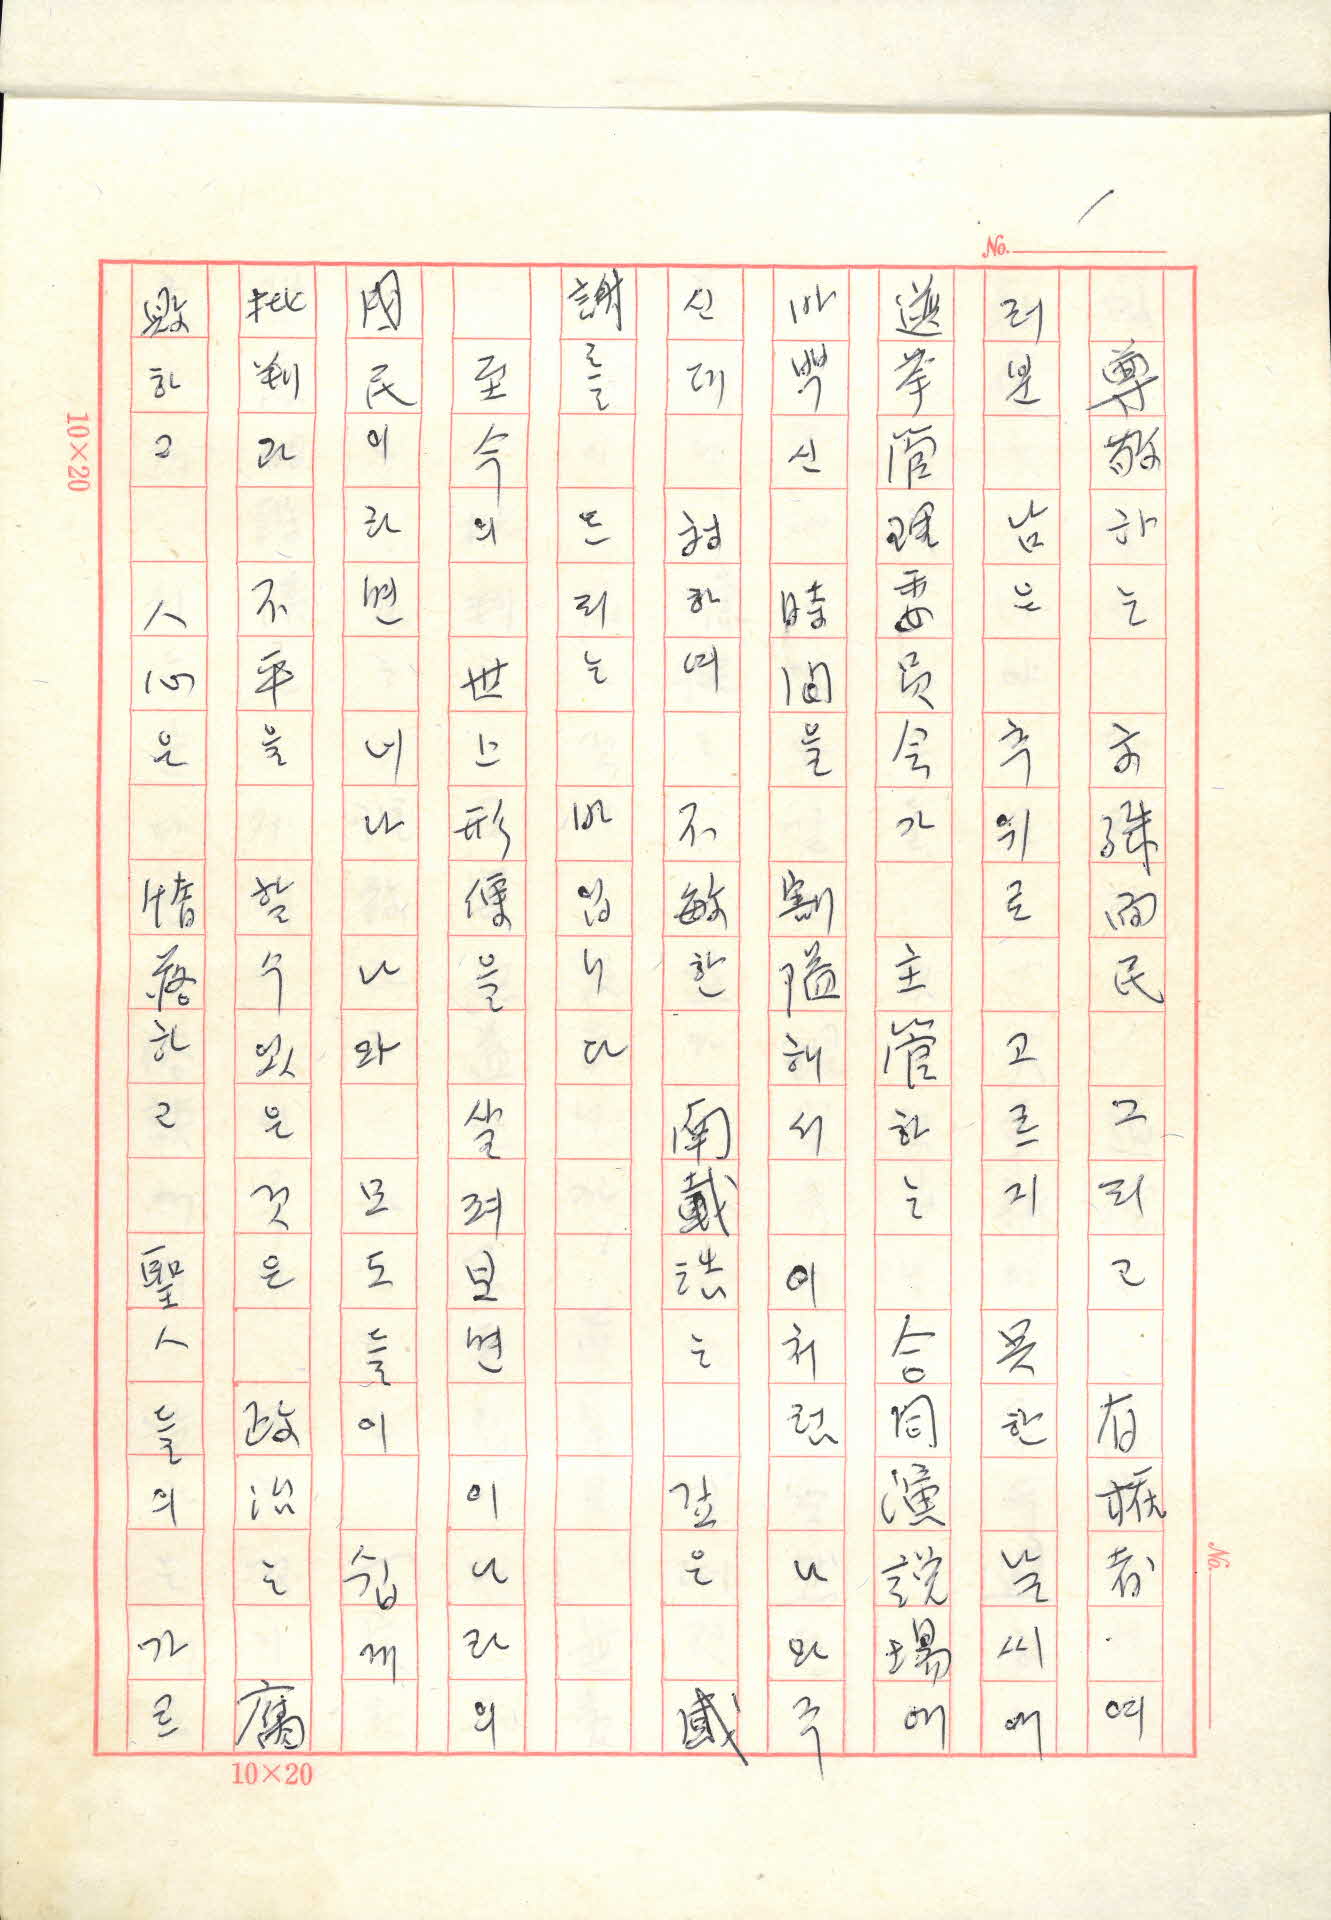 No.
尊敬하는 文殊面民 그리고 有權者. 여
러분 남은 추위로 고르지 못한 날씨에
選挙管理委員会가 主管하는 合同演説場에
바쁘신 時间을 割隘해서 이처럼 나와 주
신데 하여 不敏한 南戴浩는 깊은 感
謝를 드리는 바입니다
至今의 世上形便을 살려보면 이나라의
国民이라면 너나 나와 모도들이 쉽게
批判과 不平을 할수있은 것은 政治는 腐
毁하고 人心은 惰落하고 聖人들의 가르
10×20
10×20
No.